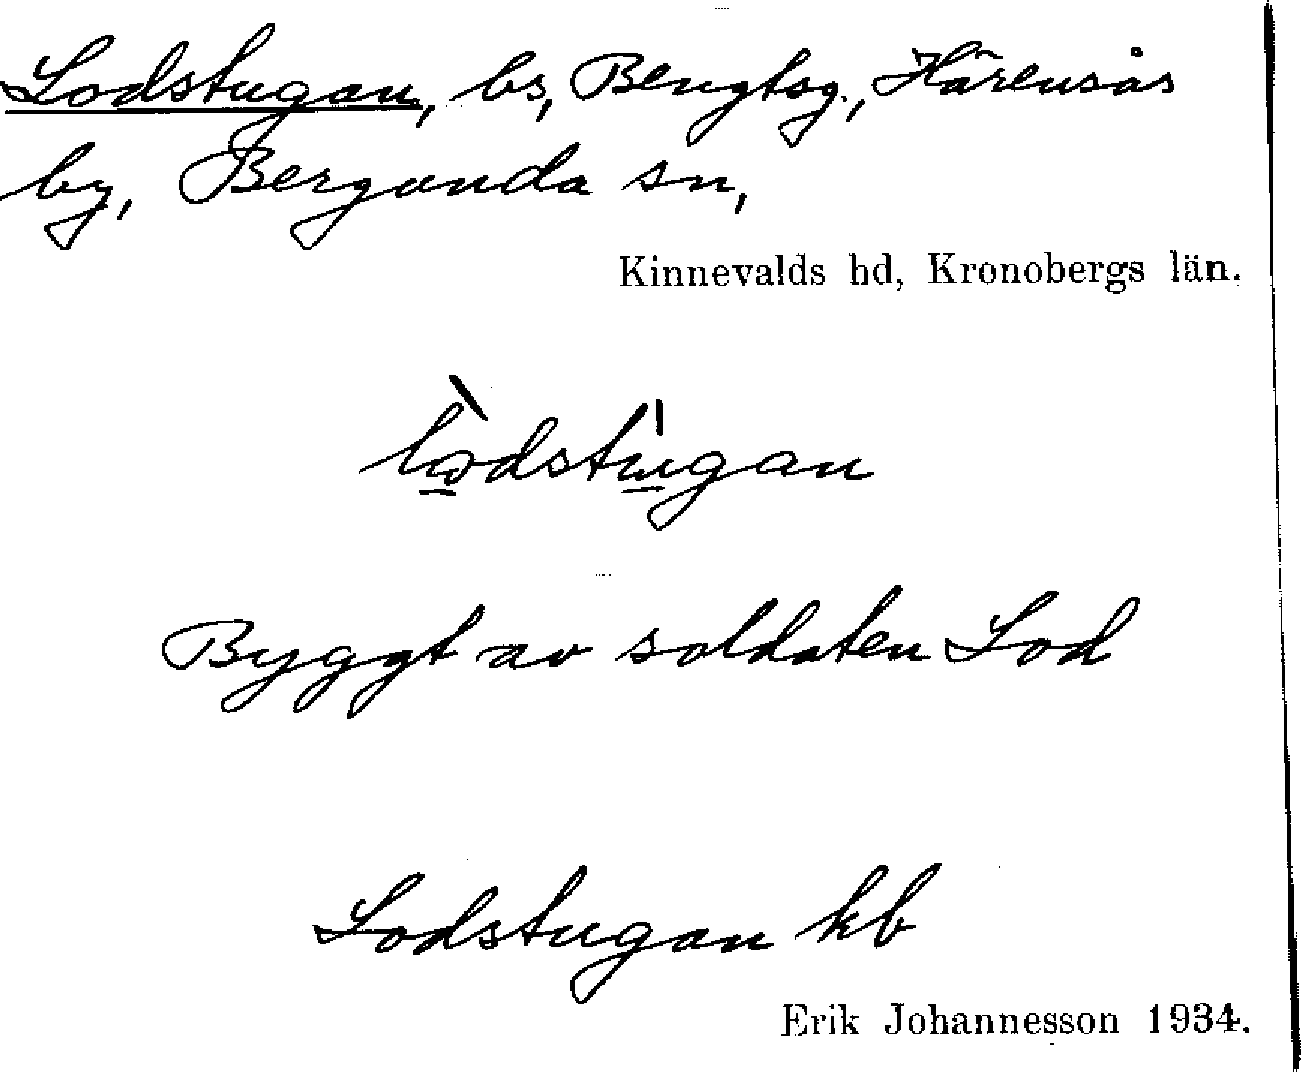 Lodstugan, bs, Bengtsg., Härensås
by, Bergunda sn,
Kinnevalds hd, Kronobergs län.
lodstugan
Byggt av soldaten Lod
Lodstugan kb
Erik Johannesson 1934.